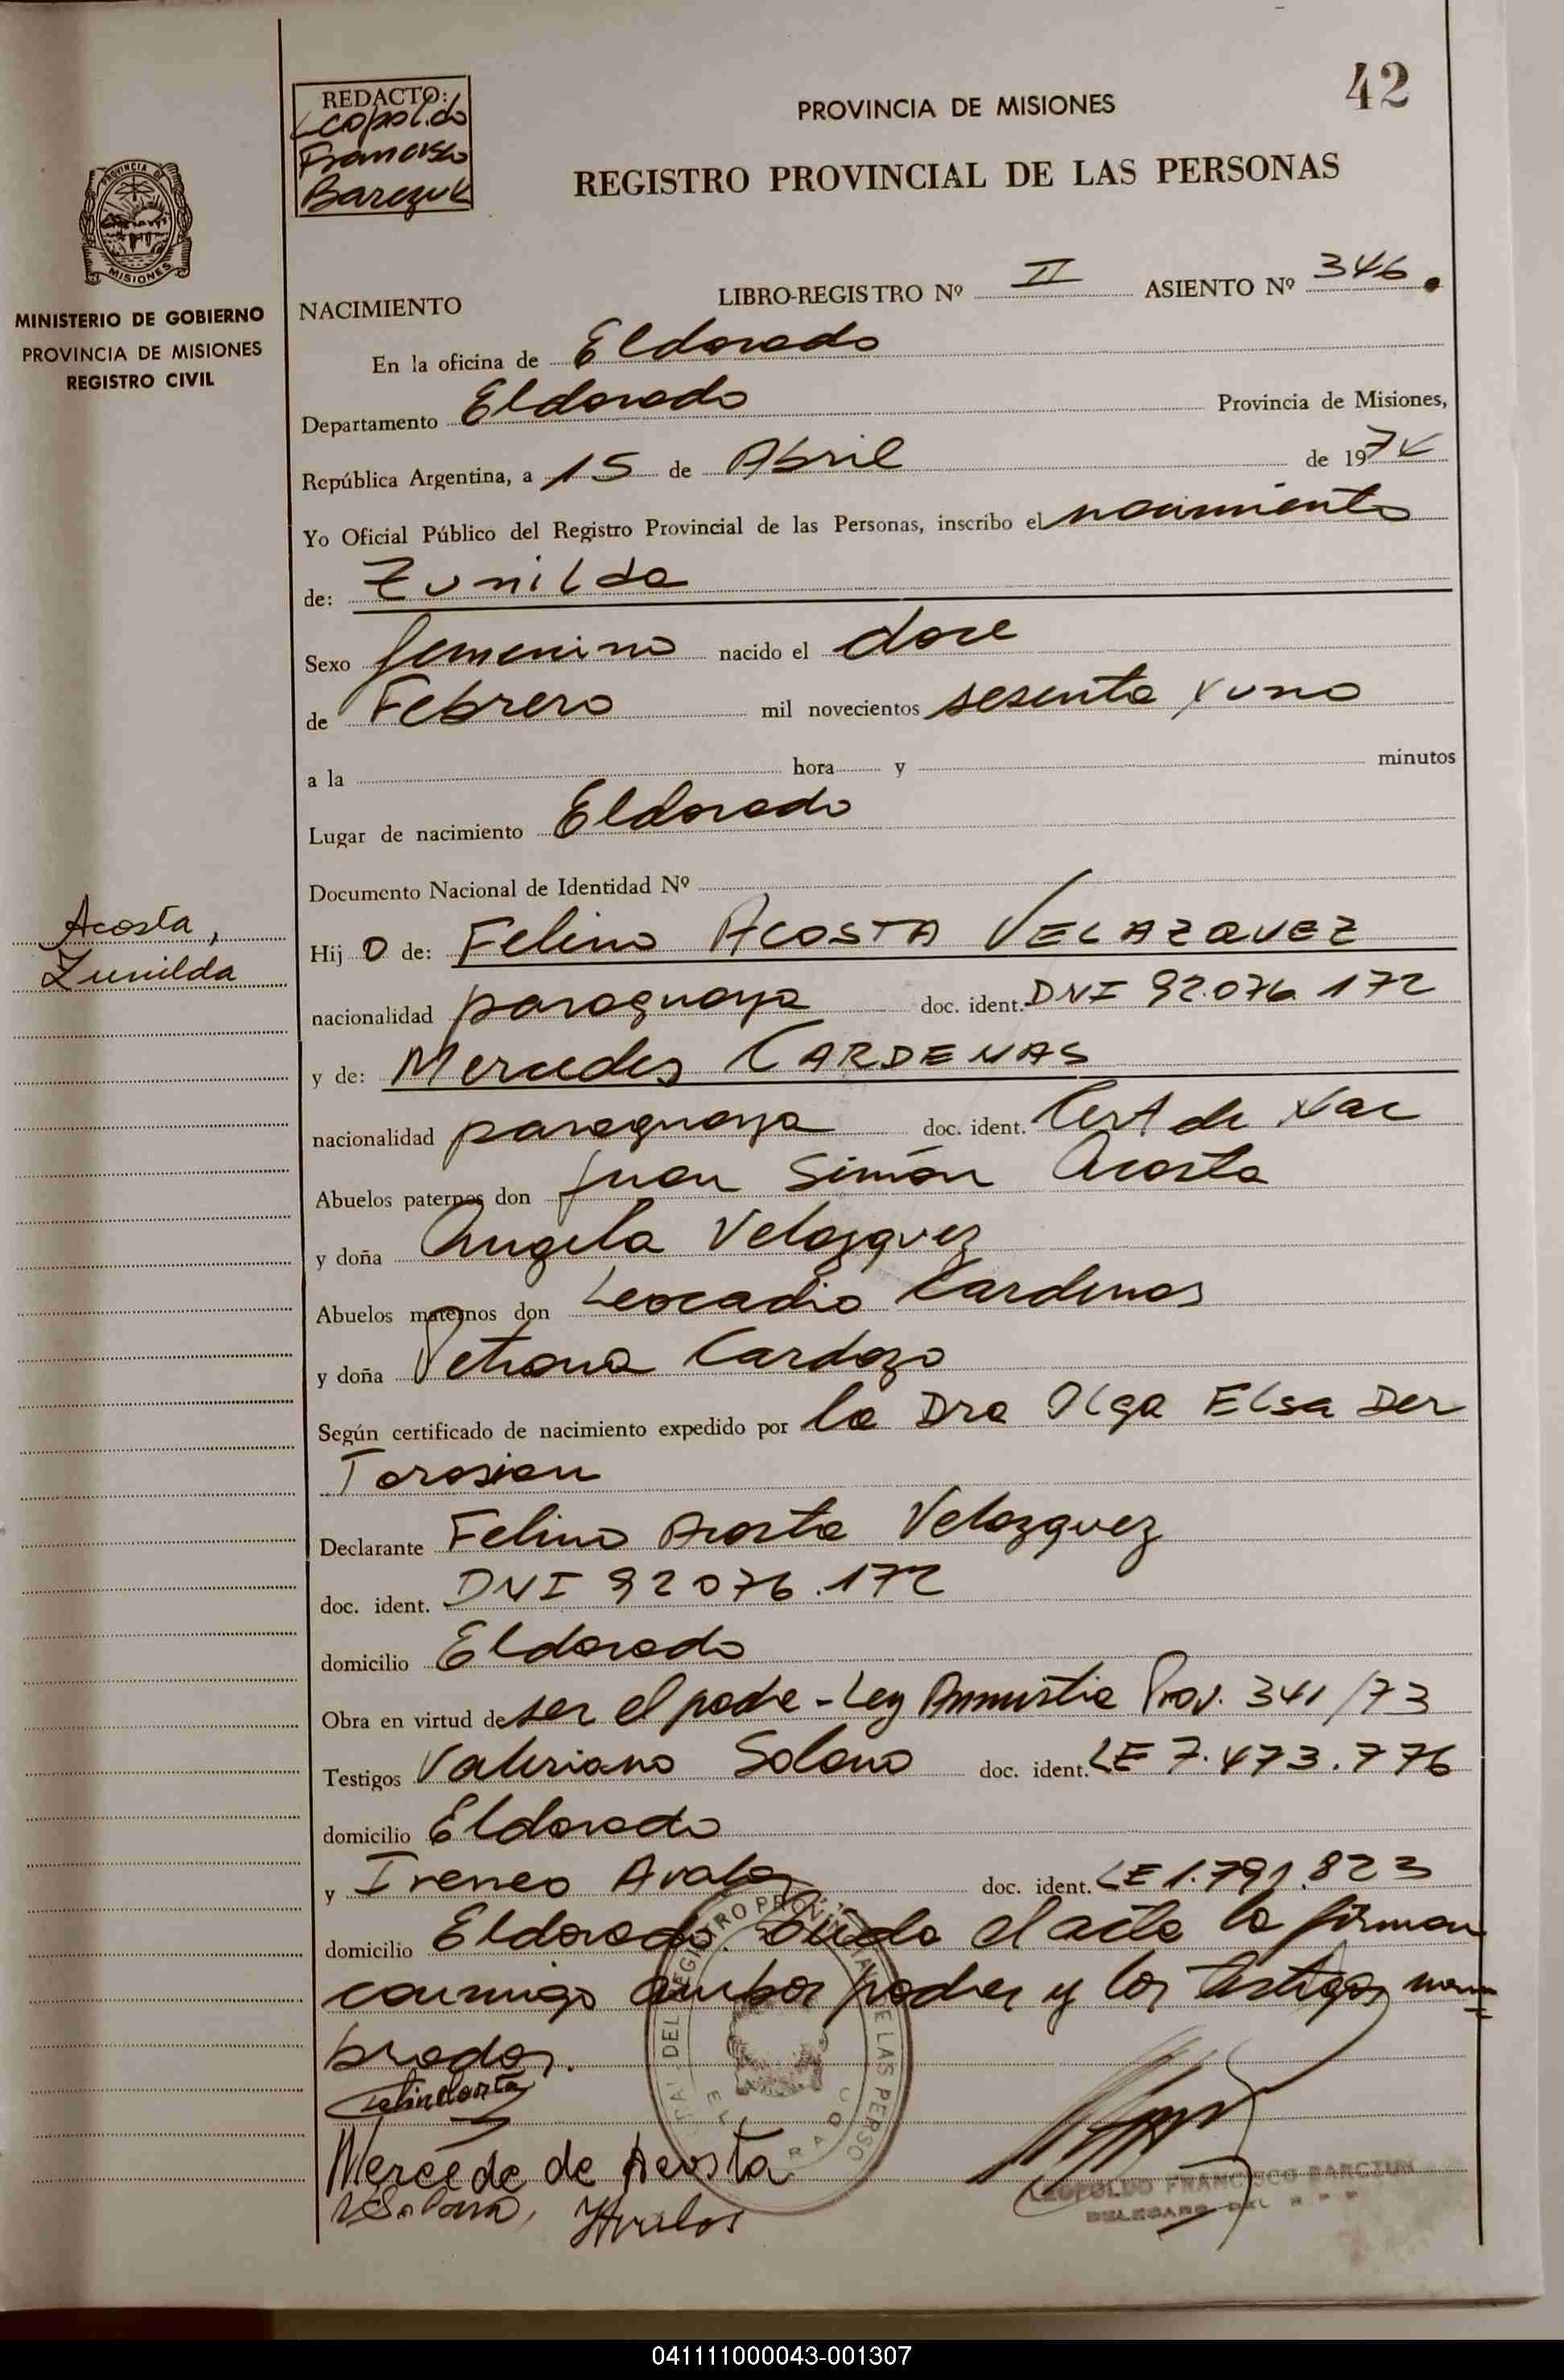 42
REDACTO:
Leopoldo
Francisco
Barczuk
PROVINCIA DE MISIONES
REGISTRO PROVINCIAL DE LAS PERSONAS
PROVINCIA DE
MISIONES
MINISTERIO DE GOBIERNO
PROVINCIA DE MISIONES
REGISTRO CIVIL
NACIMIENTO LIBRO-REGISTRO Nº II ASIENTO Nº 346.
En la oficina de Eldorado
Departamento Eldorado Provincia de Misiones,
República Argentina, a 15 de Abril de 1974
Yo Oficial Público del Registro Provincial de las Personas, inscribo el nacimiento
de: Zunilda
Sexo femenino nacido el doce
de Febrero mil novecientos sesenta y uno
a la hora y minutos
Lugar de nacimiento Eldorado
Documento Nacional de Identidad Nº
Acosta,
Zunilda
Hij O de: Felino ACOSTA VELAZQUEZ
nacionalidad paraguaya doc. ident. DNI 92.076.172
y de: Mercedes CARDENAS
nacionalidad paraguaya doc. ident. Cert de Nac
Abuelos paternos don Juan Simón Acosta
y doña Angela Velazquez
Abuelos maternos don Leocadio Cardenas
y doña Petrona Cardozo
Según certificado de nacimiento expedido por la Dra Olga Elsa Der
Torosian
Declarante Felino Acosta Velazquez
doc. ident. DNI 92 076.172
domicilio Eldorado
Obra en virtud de ser el padre - Ley Amnistia Prov. 341/73
Testigos Valeriano Solano doc. ident. LE 7.473.776
domicilio Eldorado
y Ireneo Avalos doc. ident. LE 1.791.823
domicilio Eldorado. Leida el acta la firman
conmigo ambos padres y los testigos nom=
brados.
Mercede de Acosta
Avalos
LEOPOLDO FRANCISCO BARCZUK
DELEGADO DEL R P P
041111000043-001307